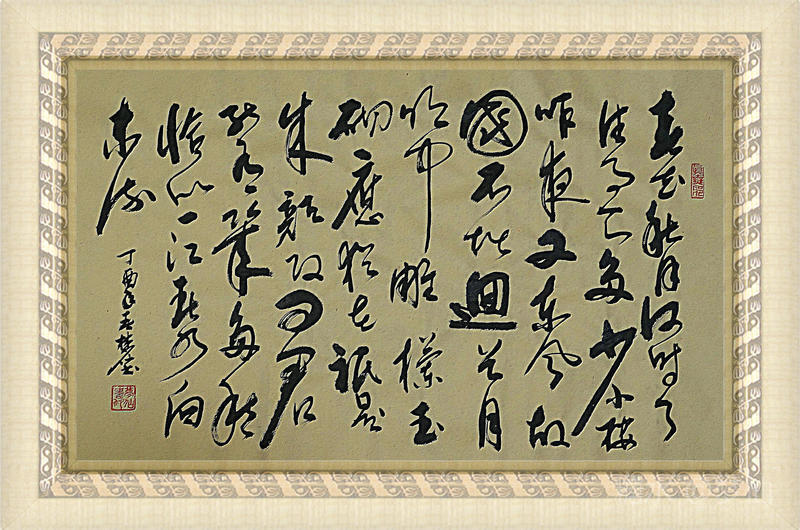 春花秋月何时了
往事知多少小楼
昨夜又东风故
國不堪迴首月
明中雕欄玉
砌應猶在祇是
朱顏改问君
能有幾多愁
恰似一江春水向
東流
丁酉年春